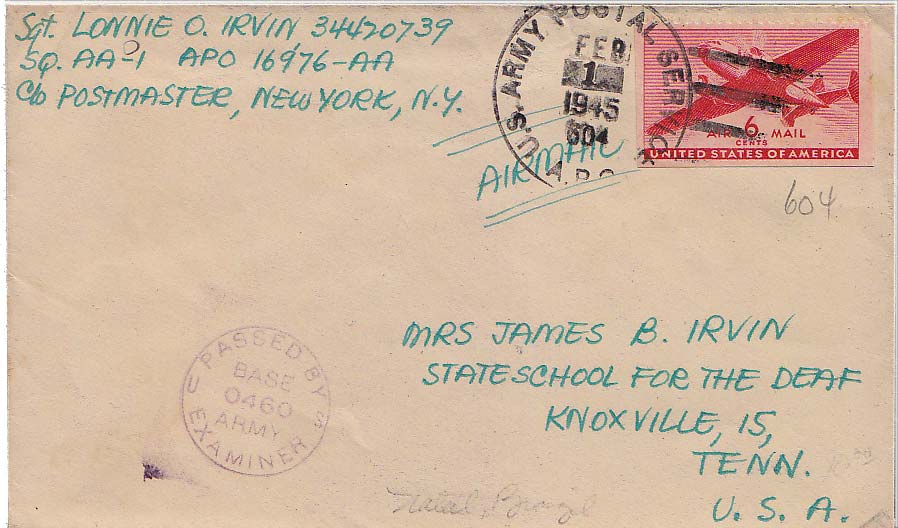 Sgt. LONNIE O. IRVIN 34470739
SQ. AA-1 APO 16976-AA
c/o POSTMASTER, NEW YORK, N.Y.
U.S. ARMY POSTAL SERVICE
FEB
1
1945
604
A.P.O.
AIR 6 MAIL
CENTS
UNITED STATES OF AMERICA
AIRMAIL
604
MRS JAMES B. IRVIN
STATE SCHOOL FOR THE DEAF
KNOXVILLE, 15,
TENN.
U. S. A.
PASSED BY
BASE
0460
ARMY
U S
EXAMINER
Natal, Brazil